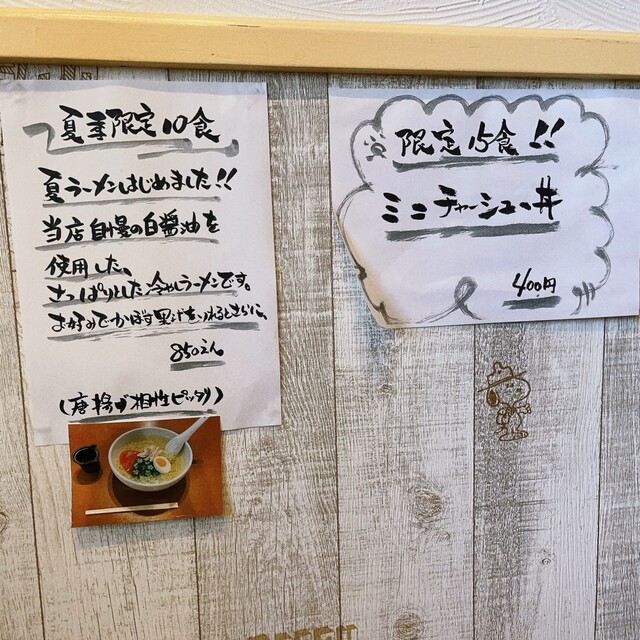 夏季限定10食
夏ラーメンはじめました!!
当店自慢の白醤油を
使用した、
さっぱりとした冷やしラーメンです。
お好みでかぼす果汁を入れるとさらに、
850えん
(唐揚が相性ピッタリ)
限定15食!!
ミニチャーシュー丼
400円